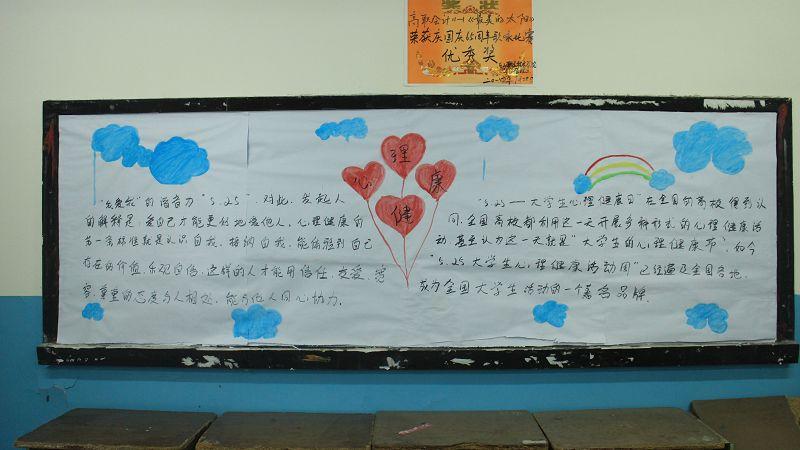 奖状
高职会计1-1《最美的太阳》
荣获庆国庆65周年歌咏比赛
优秀奖
心理健康
"我爱我"的谐音为"5.25".对此,发起人
的解释是:爱自己才能更好地爱他人。心理健康的
第一条标准就是认识自我,接纳自我,能体验到自己
存在的价值,乐观自信,这样的人才能用信任,友爱,宽
容,尊重的态度与人相处,能与他人同心协力.
"5.25——大学生心理健康日"在全国的高校得到认
同.全国高校都利用这一天开展多种形式的心理健康活
动 甚至认为这一天就是"大学生的心理健康节".如今
"5.25大学生心理健康活动周"已经遍及全国各地,
成为全国大学生活动的一个著名品牌.